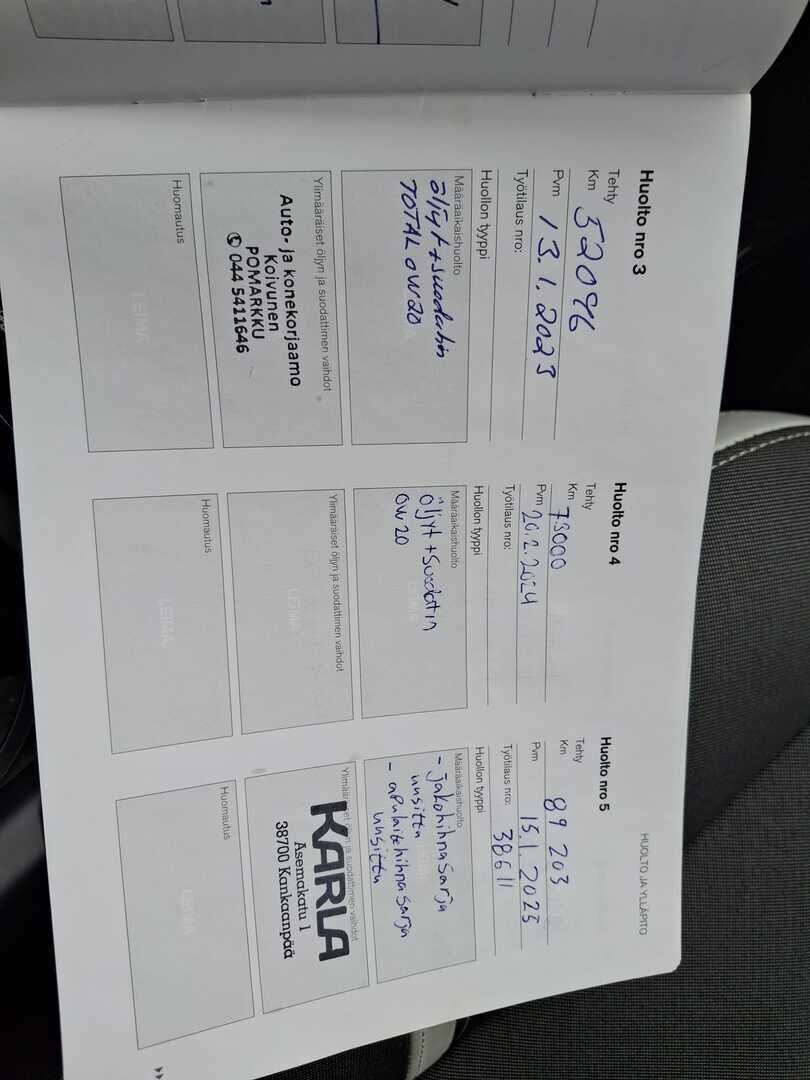 HUOLTO JA YLLÄPITO
Huolto nro 3
Tehty
Km 52096
Pvm 13.1.2023
Työtilaus nro:
Huollon tyyppi
Määräaikaishuolto
öljyt + suodatin
TOTAL 0W20
LEIMA
Ylimääräiset öljyn ja suodattimen vaihdot
Auto- ja konekorjaamo
Koivunen
POMARKKU
✆ 044 5411646
Huomautus
LEIMA
Huolto nro 4
Tehty
Km 73000
Pvm 20.2.2024
Työtilaus nro:
Huollon tyyppi
Määräaikaishuolto
öljyt + suodatin
0W20
LEIMA
Ylimääräiset öljyn ja suodattimen vaihdot
LEIMA
Huomautus
LEIMA
Huolto nro 5
Tehty
Km 89 203
Pvm 15.1.2025
Työtilaus nro: 38611
Huollon tyyppi
Määräaikaishuolto
- jakohihnasarja
uusittu
- apulaitehihnasarja
uusittu
LEIMA
Ylimääräiset öljyn ja suodattimen vaihdot
KARLA
Asemakatu 1
38700 Kankaanpää
Huomautus
LEIMA